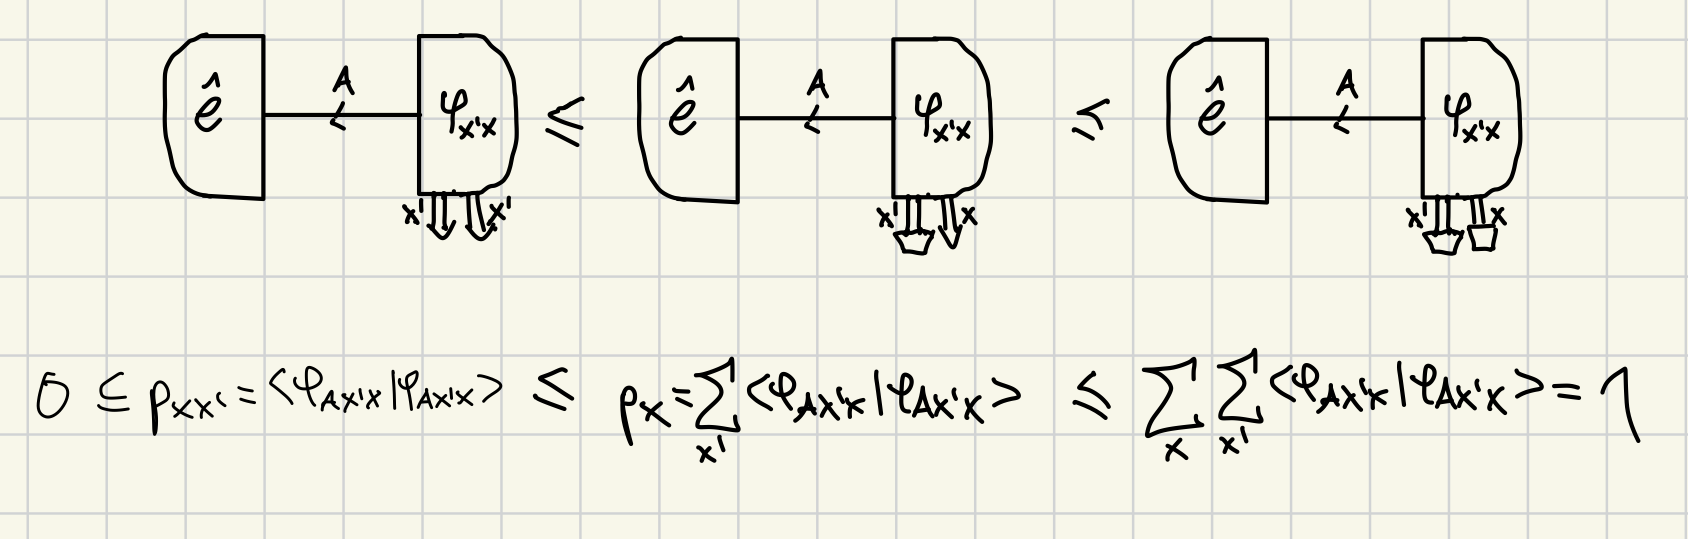 ê A φ_{x'x} ≤ ê A φ_{x'x} ≤ ê A φ_{x'x}
x' x' x' x x' x
0 ≤ p_{xx'} = <φ_{Ax'x}|φ_{Ax'x}> ≤ p_x = Σ_{x'} <φ_{Ax'x}|φ_{Ax'x}> ≤ Σ_x Σ_{x'} <φ_{Ax'x}|φ_{Ax'x}> = 1